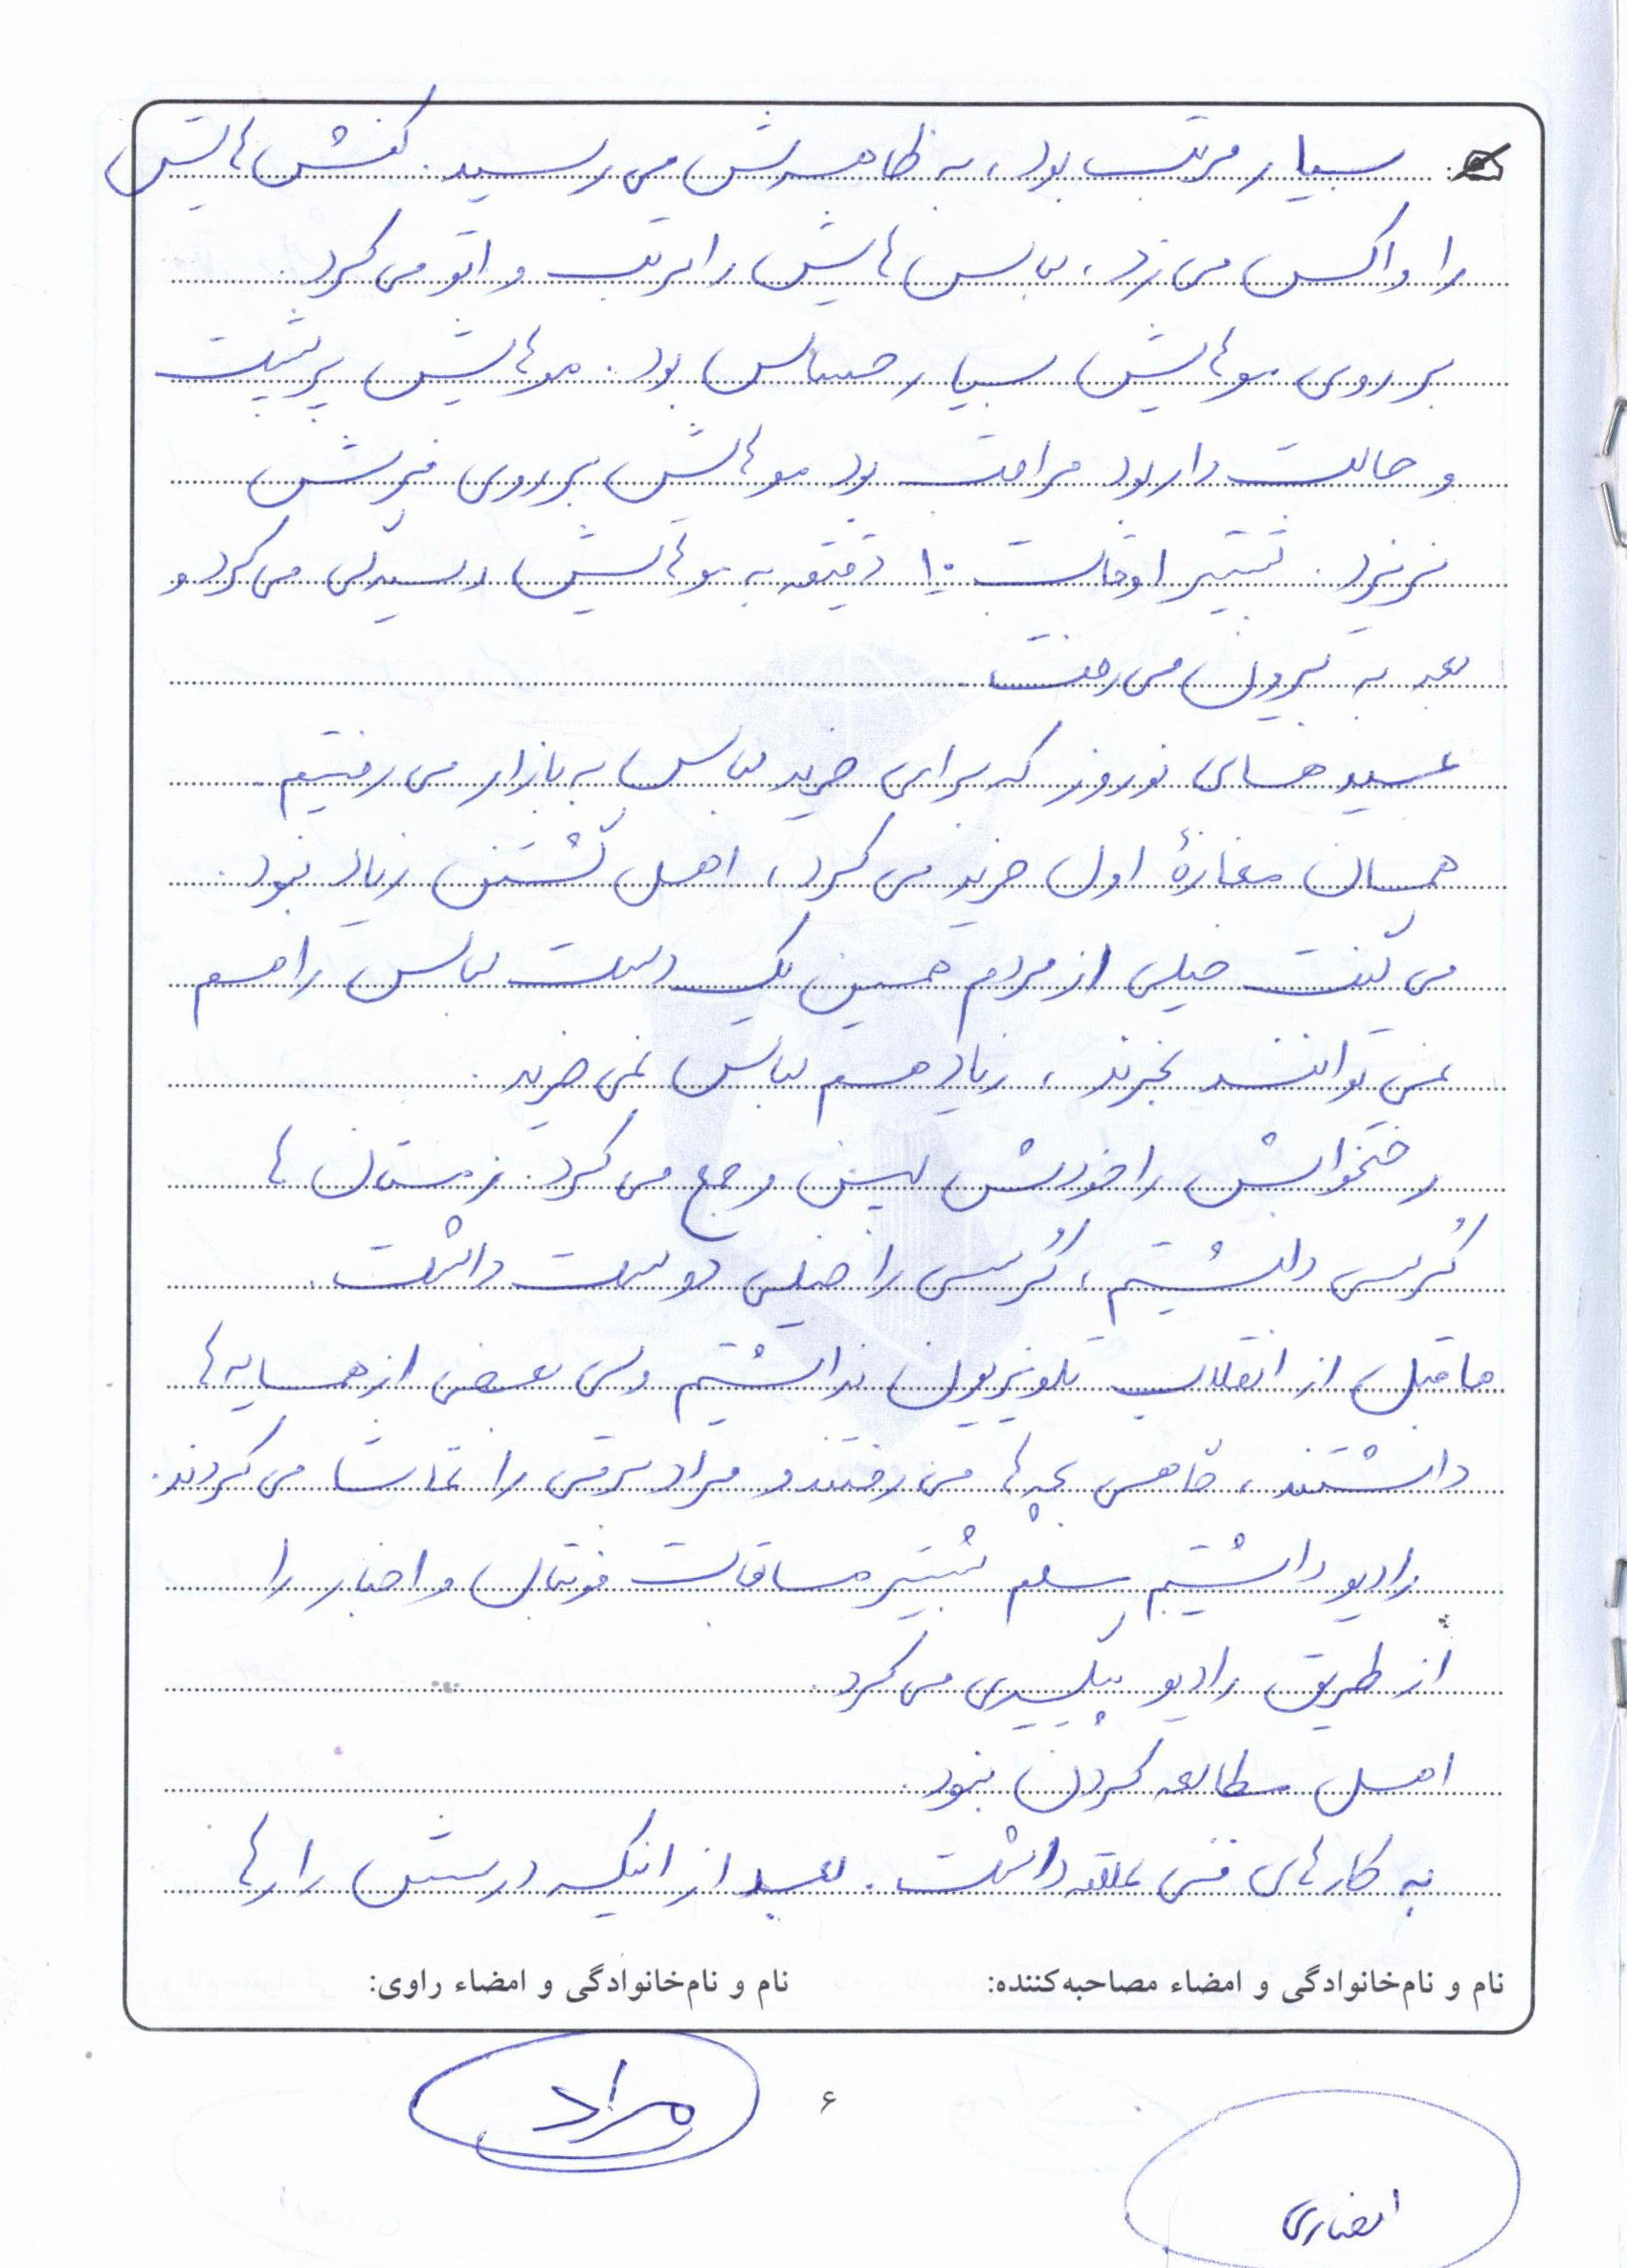 بسیار مرتب بود، به ظاهرش می رسید. کفش هایش
را واکس می زد، لباس هایش را مرتب و اتو می کرد.
بر روی موهایش بسیار حساس بود. موهایش پرپشت
و حالت دار بود مراقب بود موهایش بر روی فرش
نریزد. بیشتر اوقات ۱۰ دقیقه به موهایش رسیدگی می کرد و
بعد به بیرون می رفت.
عید های نوروز که برای خرید لباس به بازار می رفتیم
همان مغازهٔ اول خرید می کرد، اهل گشتن زیاد نبود.
می گفت خیلی از مردم همین یک دست لباس را هم
نمی توانند بخرند، زیاد هم لباس نمی خرید.
رختخوابش را خودش پهن و جمع می کرد. زمستان ها
کُرسی داشتیم، کُرسی را خیلی دوست داشت.
ما قبل از انقلاب تلویزیون نداشتیم ولی بعضی از همسایه ها
داشتند، گاهی بچه ها می رفتند و مراد برقی را تماشا می کردند.
رادیو داشتیم بیشتر مسابقات فوتبال و اخبار را
از طریق رادیو پیگیری می کرد.
اهل مطالعه کردن نبود.
به کارهای فنی علاقه داشت. بعد از اینکه درسش را رها
نام و نام‌خانوادگی و امضاء مصاحبه‌کننده: نام و نام‌خانوادگی و امضاء راوی:
۶
مراد
انصاری